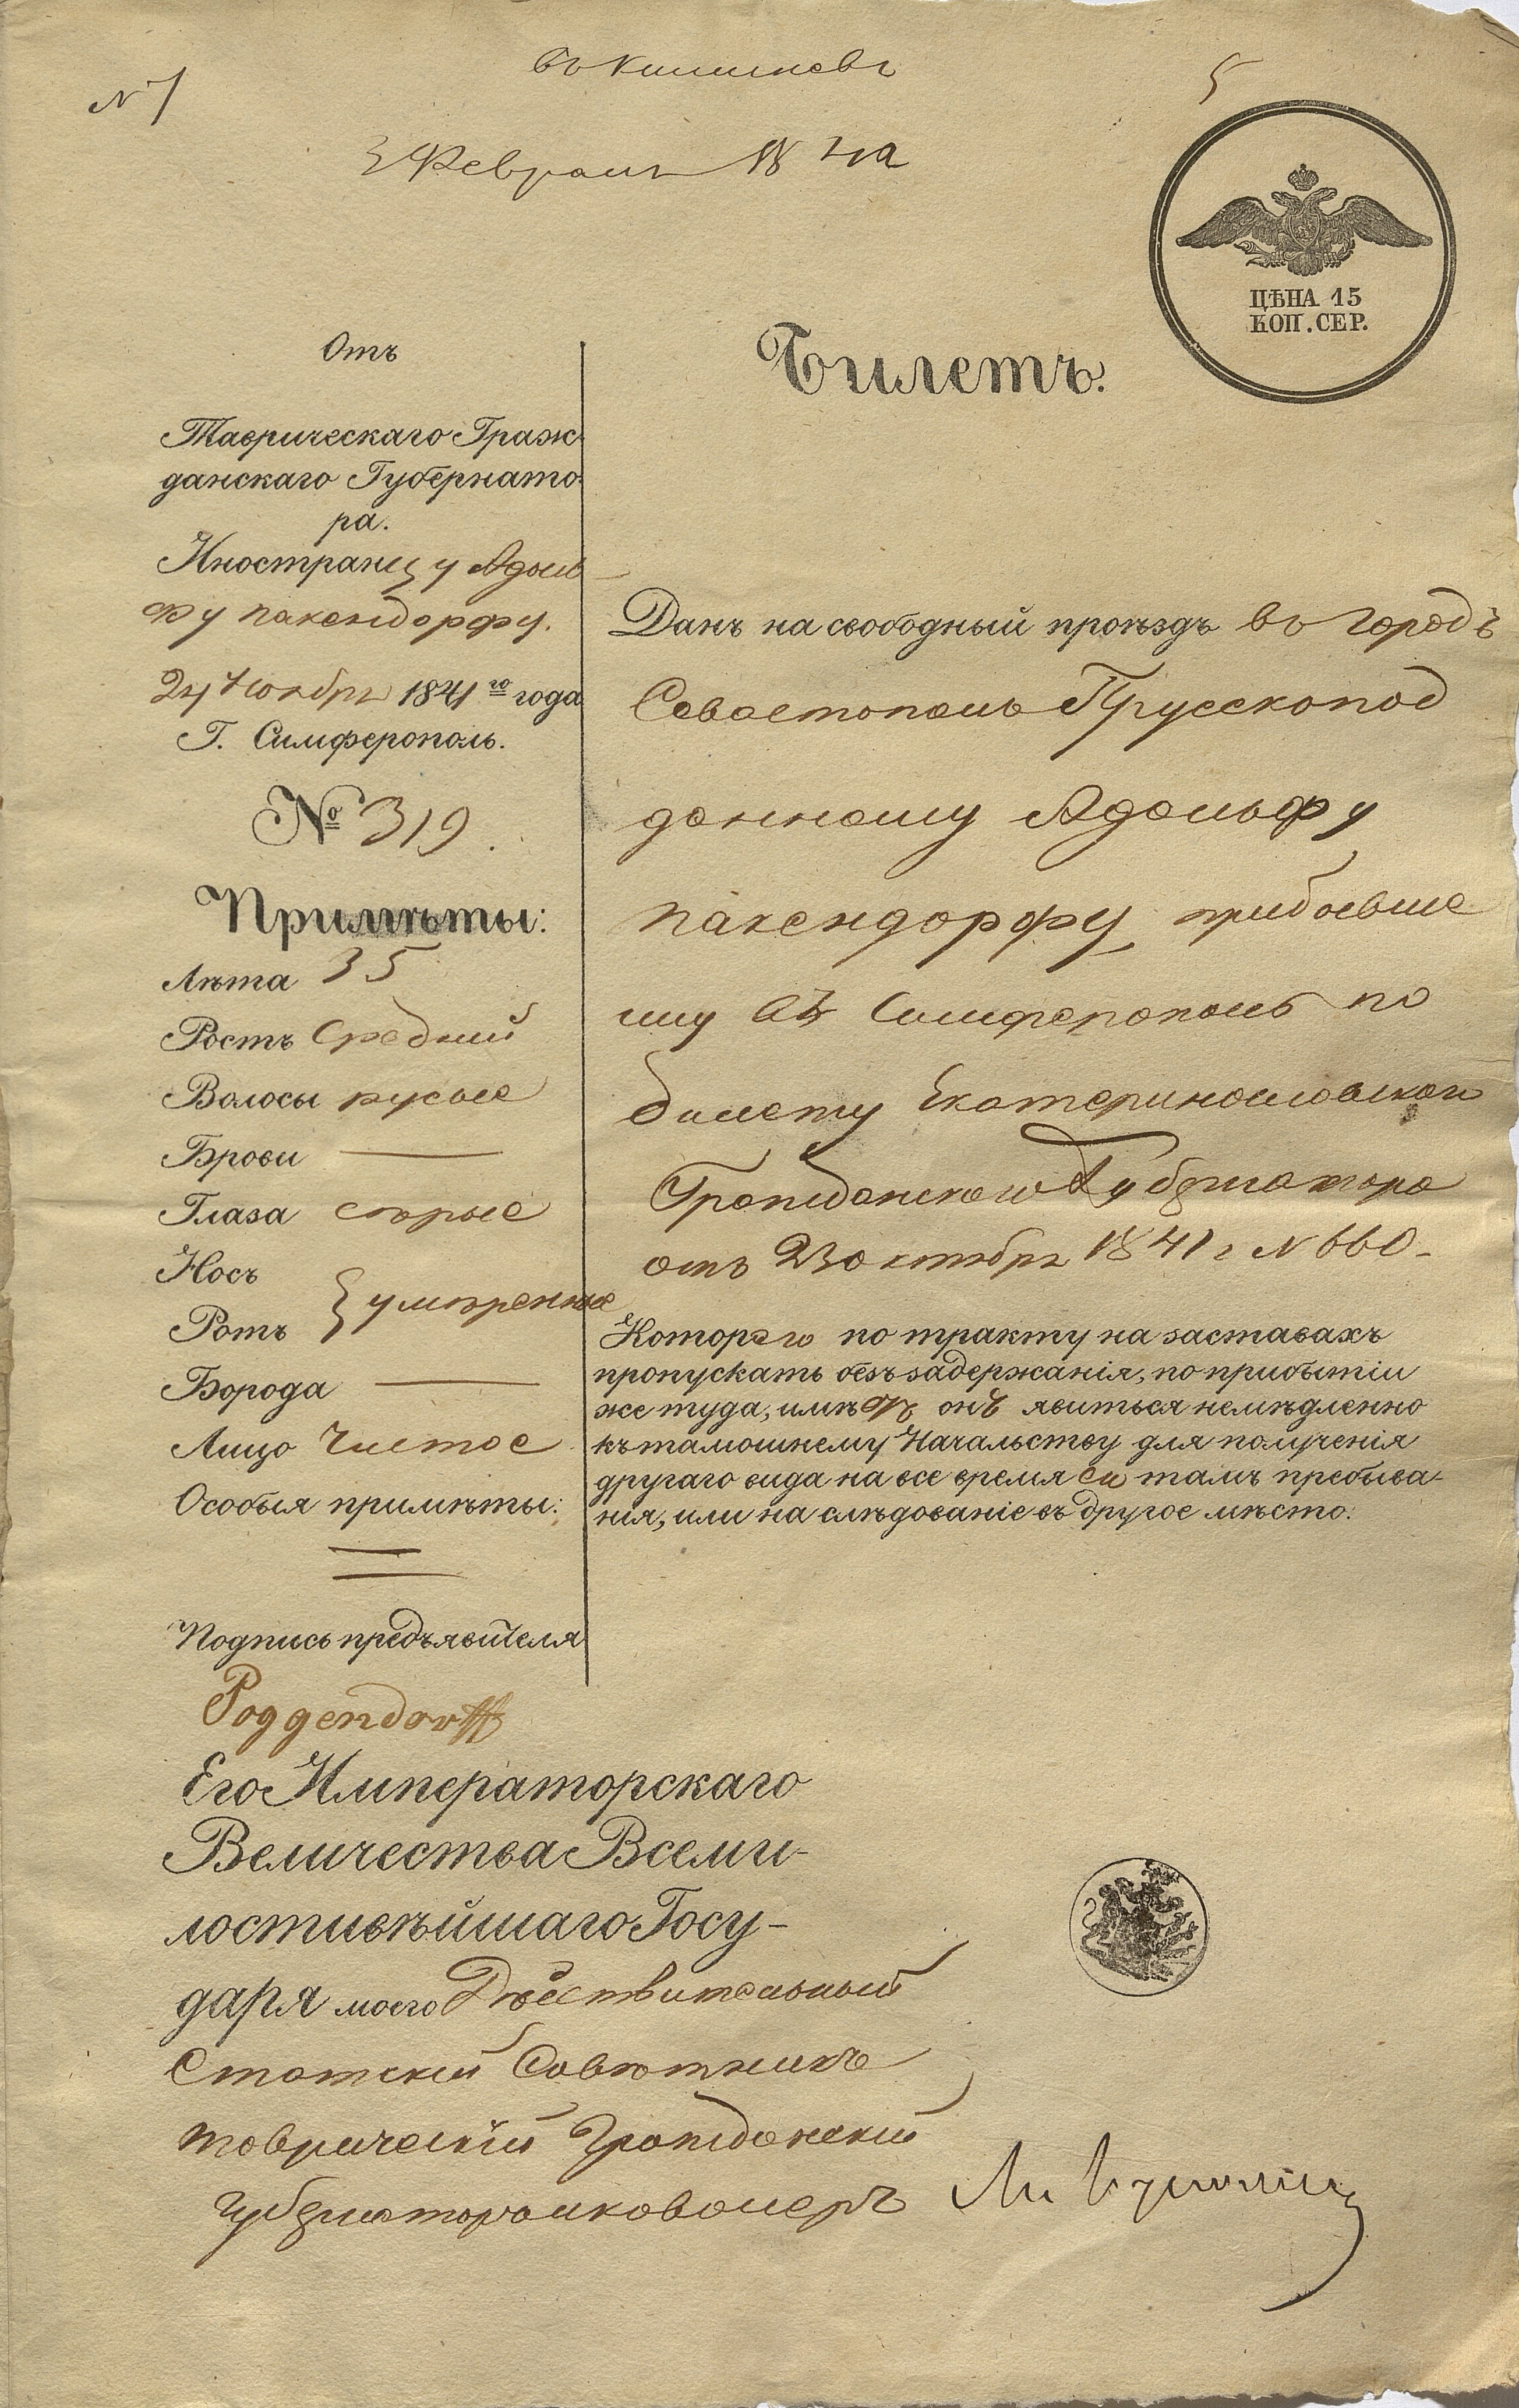 въ Кишиневъ
№ 7
5
3 Февраля 1842
ЦѢНА 15
КОП. СЕР.
Билетъ.
Отъ
Таврическаго Граж-
данскаго Губернато-
ра.
Иностранцу Адоль-
фу Пакендорфу.
24 Ноября 1841го года
Г. Симферополь.
№ 319.
Примѣты:
Лѣта 35
Ростъ средний
Волосы русые
Брови —
Глаза сѣрые
Носъ
Ротъ } умѣренные
Борода —
Лицо чистое
Особыя примѣты:
Подпись предъявителя
Poggendorff
Данъ на свободный проѣздъ въ городъ
Севастополь Прусскопод
данному Адольфу
Пакендорфу прибывше
му въ Симферополь по
билету Екатеринославскаго
Гражданскаго Губернатора
отъ 23 октября 1841 г № 660.
Котораго по тракту на заставахъ
пропускать безъ задержанія, по прибытіи
же туда, имѣетъ онъ явиться немѣдленно
къ тамошнему Начальству для полученія
другаго вида на все время его тамъ пребыва-
нія, или на слѣдованіе въ другое мѣсто.
Его Императорскаго
Величества Всеми-
лостивѣйшаго Госу-
даря моего Действительный
Статскій Совѣтникъ
Таврическій Гражданскій
Губернаторъ и кавалеръ